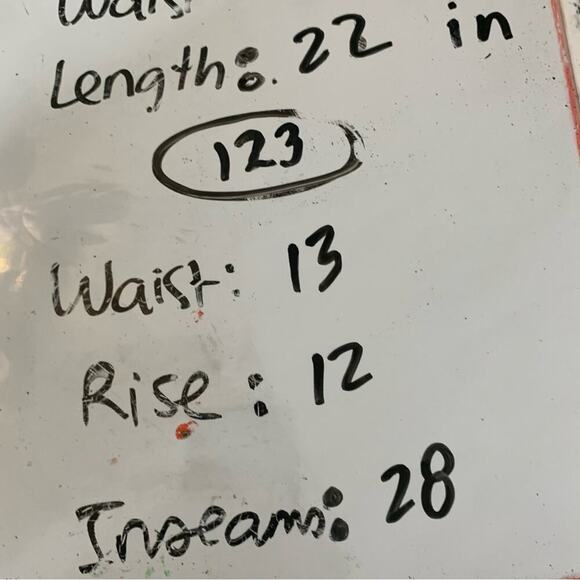 Waist
Length: 22 in
123
Waist: 13
Rise: 12
Inseams: 28